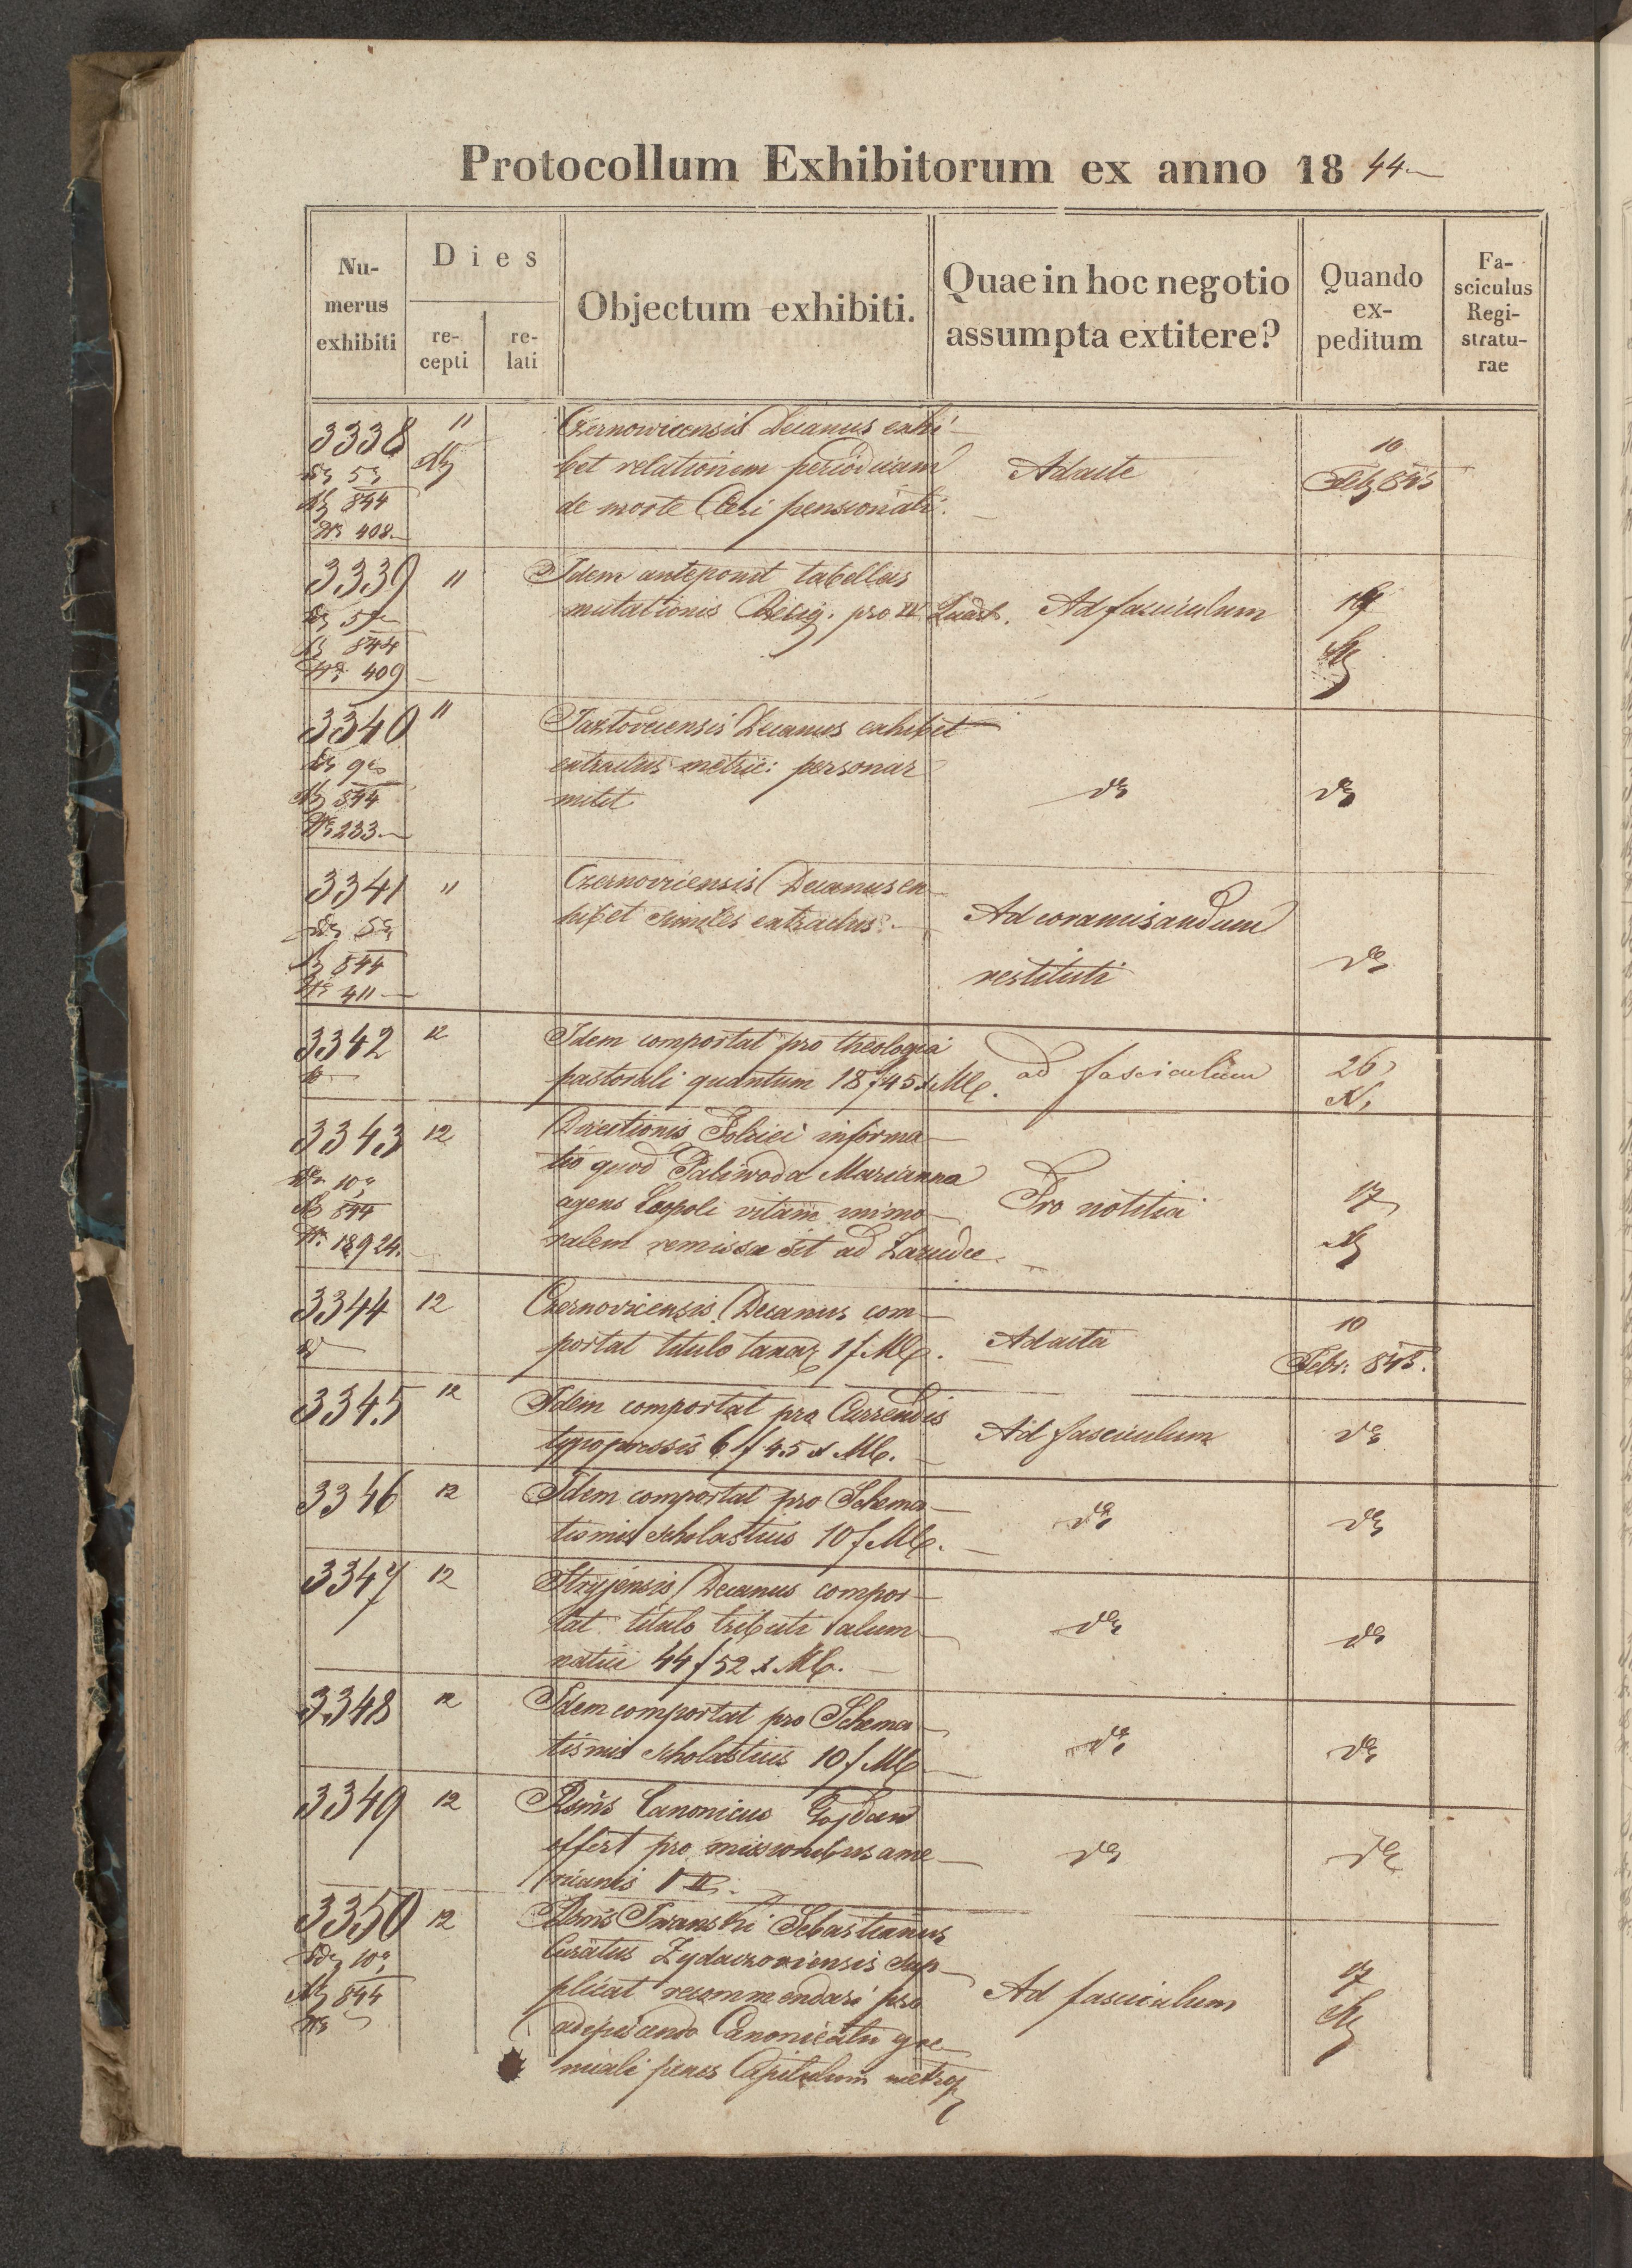 Protocollum Exhibitorum ex anno 18 44
Nu-
merus
exhibiti
Dies
re-
cepti
re-
lati
Objectum exhibiti.
Quae in hoc negotio
assumpta extitere?
Quando
ex-
peditum
Fa-
sciculus
Regi-
stratu-
rae
3338 11 Czernowicensis Decanus exhi-
bet relationem periodicam
de morte Cleri pensionati.
844
408
Ad acta
10
Feb 845
3339 11 Idem anteponit tabellas
mutationis pro IV Quart.
844
409
Ad fasciculum
3340 11 Jazlovecensis Decanus exhibet
extractus metric: personar
milit
844
233
do
do
3341 11 Czernoviensis Decanus ex-
hibet similes extractus.
844
411
Ad coramisandum
restituti
do
3342 12 Idem comportat pro theologia
pastorali quantum 18 f 45 x
ad fasciculum
26
3343 12 Directionis Policiei informa-
tio quod Paliwoda Marianna
agens Leopoli vitam immo-
ralem remissa sit ad
10
844
18924
Pro notitia
17
3344 12 Czernovicensis Decanus com-
portat titulo taxar 1 f
Ad acta
10
Febr: 845.
3345 12 Idem comportat pro Currendis
typopressis 6 f 45 x
Ad fasciculum
do
3346 12 Idem comportat pro Schema-
tismis scholasticis 10 f
do
do
3347 12 Stryjensis Decanus compor-
tat titulo tributi alum-
natici 44 f 52 x
do
do
3348 12 Idem comportat pro Schema-
tismis scholasticis 10 f
do
do
3349 12 Rsmus Canonicus Gojdan
offert pro missionibus ame-
ricanis
do
do
3350 12 Iwanski Sebastianus
Curatus Zydaczoviensis sup-
plicat recommendari pro
adipiscendo Canonicatu gre-
miali penes Capitulum metrop
10
844
Ad fasciculum
17